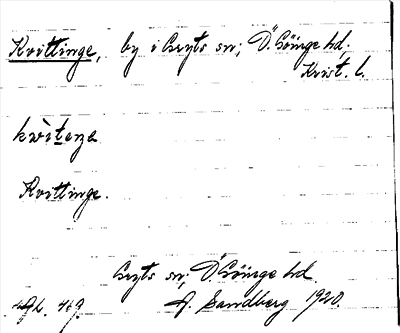 Kvittinge, by i Gryts sn; Ö. Göinge hd,
Krist. l.
kwìteŋe
Kvittinge.
Gryts sn, Ö. Göinge hd
A. Sandberg 1920.